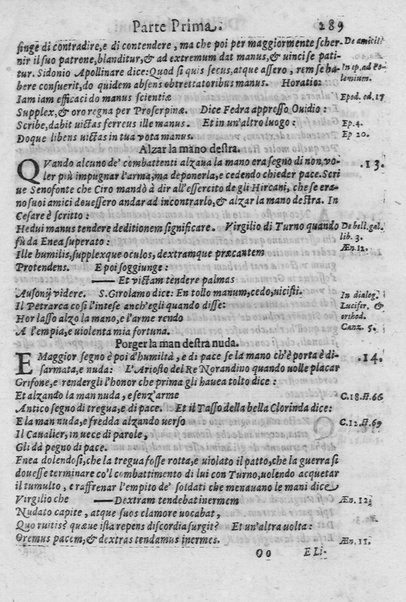 Parte Prima. 289
finge di contradire, e di contendere, ma che poi per maggiormente scher- De amicit.
nir il suo patrone, blanditur, & ad extremum dat manus, & uincise pati-
tur. Sidonio Apollinare dice: Quod si quis secus, atque assero, rem se ha- In ep. ad
bere consuerit, do quidem absens obtrectatoribus manus. Horatio:
Iam iam efficaci do manus scientiæ Epod. od. 17
Supplex, & oro regna per Proserpinæ. Dice Fedra appresso Ouidio:
Scribe, dabit uictas ferreus ille manus. Et in un'altro luogo: Ep. 4.
Doque libens uictas in tua vota manus. Ep 20.
Alzar la mano destra.
QVando alcuno de' combattenti alzaua la mano era segno di non uo- .13.
ler più impugnar l'arma, ma deponerla, e cedendo chieder pace. Scri
ue Senofonte che Ciro mandò à dir all'essercito de gli Hircani, che se era-
no suoi amici deuessero andar ad incontrarlo, & alzar la mano destra. In
Cesare è scritto:
Hedui manus tendere deditionem significare. Virgilio di Turno quando De bell. gal.
fù da Enea superato: lib. 3.
Ille humilis, supplexque oculos, dextramque præcantem Æn. 12.
Protendens. E poi soggiunge:
— Et uictam tendere palmas
Ausonij videre. S. Girolamo dice: En tollo manum, cedo, uicisti. In dialog.
Il Petrarca così l'intese anch'egli quando disse: Lucifer. &
Hor lasso alzo la mano, e l'arme rendo orthod.
A l'empia, e violenta mia fortuna. Canz. 5.
Porger la man destra nuda.
E Maggior segno è poi d'humiltà, e di pace se la mano ch'è porta è di- .14.
sarmata, e nuda: L'Ariosto del Re Norandino quando uolle placar
Grifone, e rendergli l'honor che prima gli hauea tolto dice:
Et alzando la man nuda, e senz'arme C. 18. st. 66
Antico segno di tregua, e di pace. Et il Tasso della bella Clorinda dice:
E la man nuda, e fredda alzando uerso C. 12. st. 69
Il Caualier, in uece di parole,
Gli dà pegno di pace.
Enea dolendosi, che la tregua fosse rotta, e uiolato il patto, che la guerra si
douesse terminare col combattimento di lui con Turno, uolendo acquetar
il tumulto, e raffrenar l'empito de' soldati che menauano le mani dice
Virgilio che — Dextram tendebat inermem Æn. 12.
Nudato capite, atque suos clamore uocabat,
Quo ruitis? quæue ista repens discordia surgit? Et un'altra uolta:
Oremus pacem, & dextras tendamus inermes. Æn. 11.
Oo E Li-